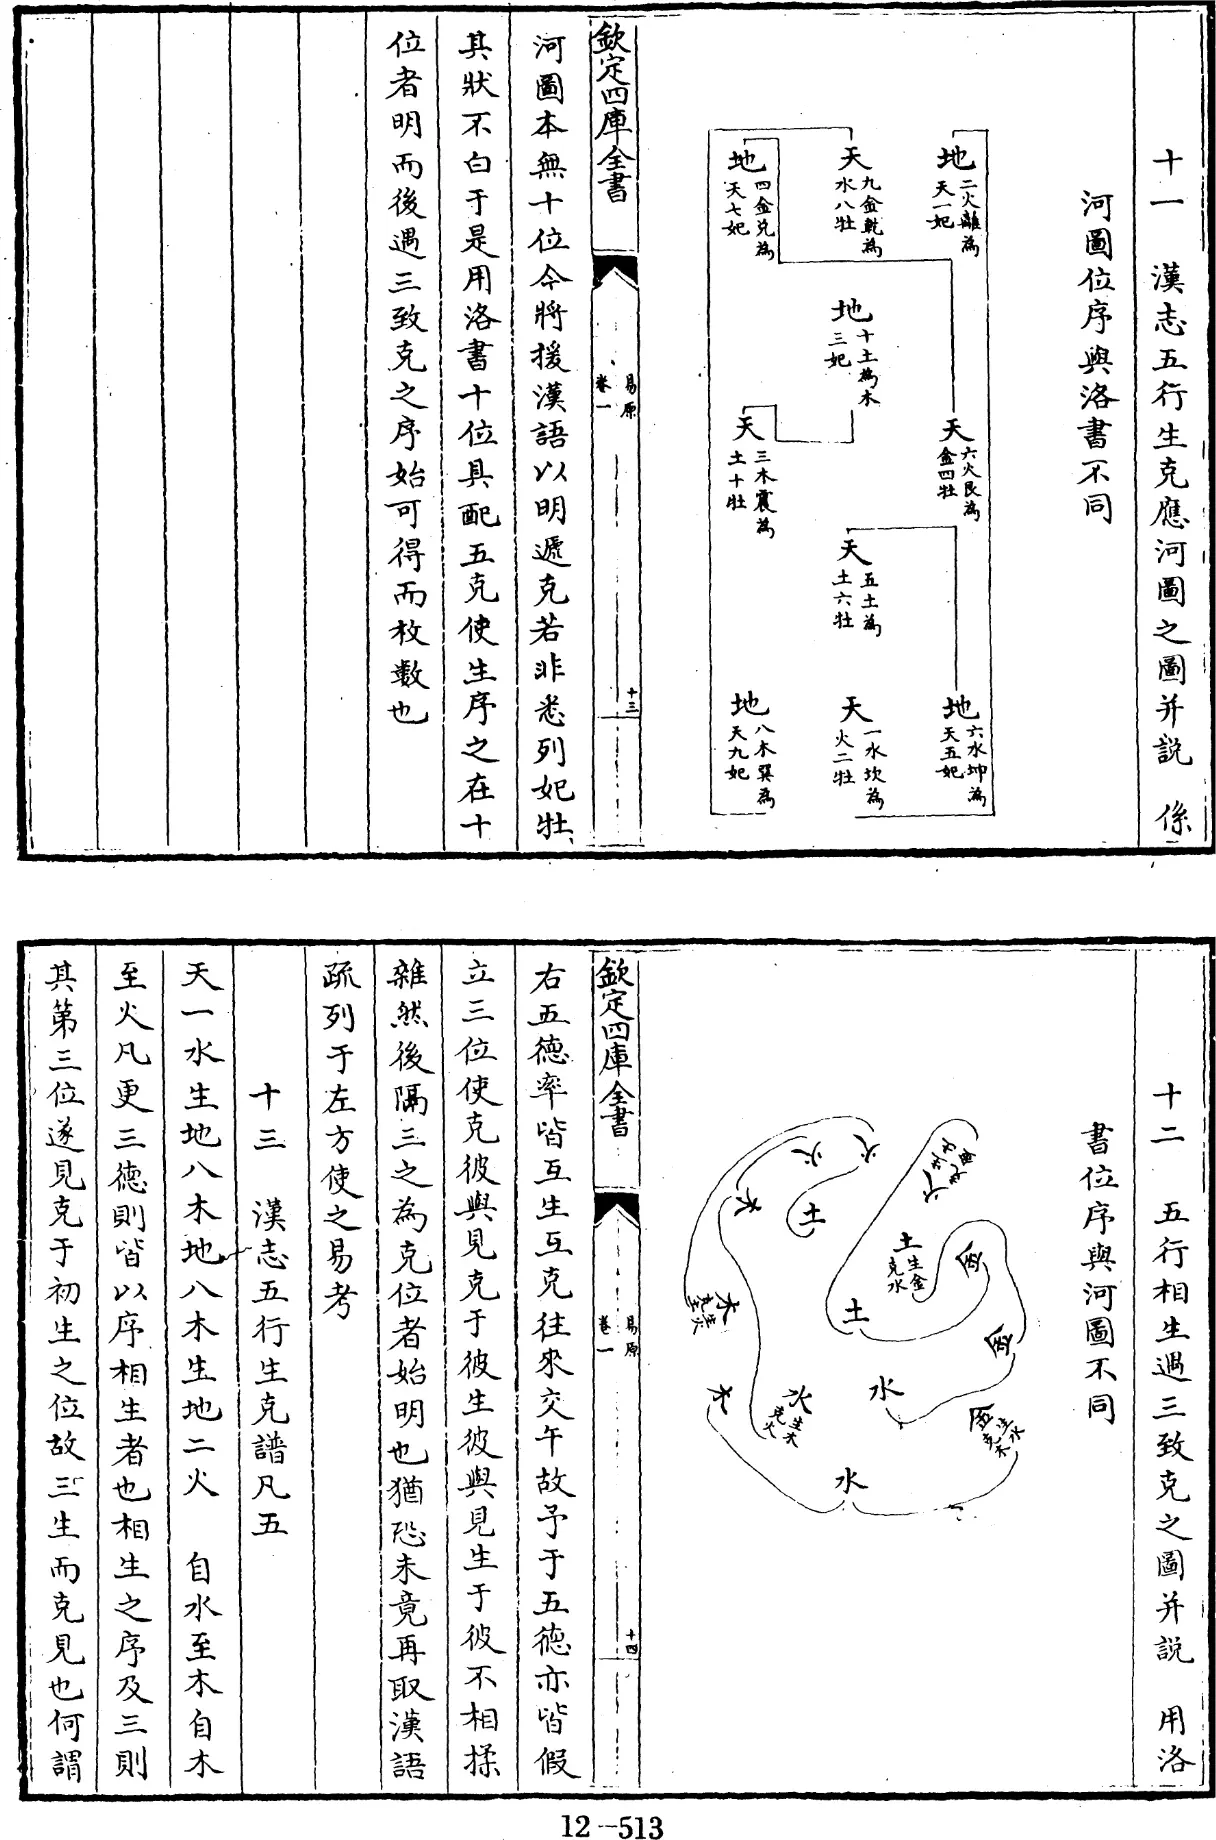 十一　漢志五行生克應河圖之圖并説　係
河圖位序與洛書不同
地二火離為天一妃
天九金乾為水八牡
地四金兑為天七妃
地十土為木三妃
天六火艮為金四牡
天三木震為土十牡
天五土為土六牡
地六水坤為天五妃
天一水坎為火二牡
地八木巽為天九妃
欽定四庫全書
易原
卷一
十三
河圖本無十位今將援漢語以明遞克若非悉列妃牡
其狀不白于是用洛書十位具配五克使生序之在十
位者明而後遇三致克之序始可得而枚數也
十二　五行相生遇三致克之圖并説　用洛
書位序與河圖不同
火
火
木
土
土生金克水
金
土
金
木生火克土
水
水生木克火
金生水克木
木
水
欽定四庫全書
易原
卷一
十四
右五德率皆互生互克往來交午故予于五德亦皆假
立三位使克彼與見克于彼生彼與見生于彼不相揉
雜然後隔三之為克位者始明也猶恐未竟再取漢語
疏列于左方使之易考
十三　漢志五行生克譜凡五
天一水生地八木地八木生地二火　自水至木自木
至火凡更三德則皆以序相生者也相生之序及三則
其第三位遂見克于初生之位故三生而克見也何謂
12-513